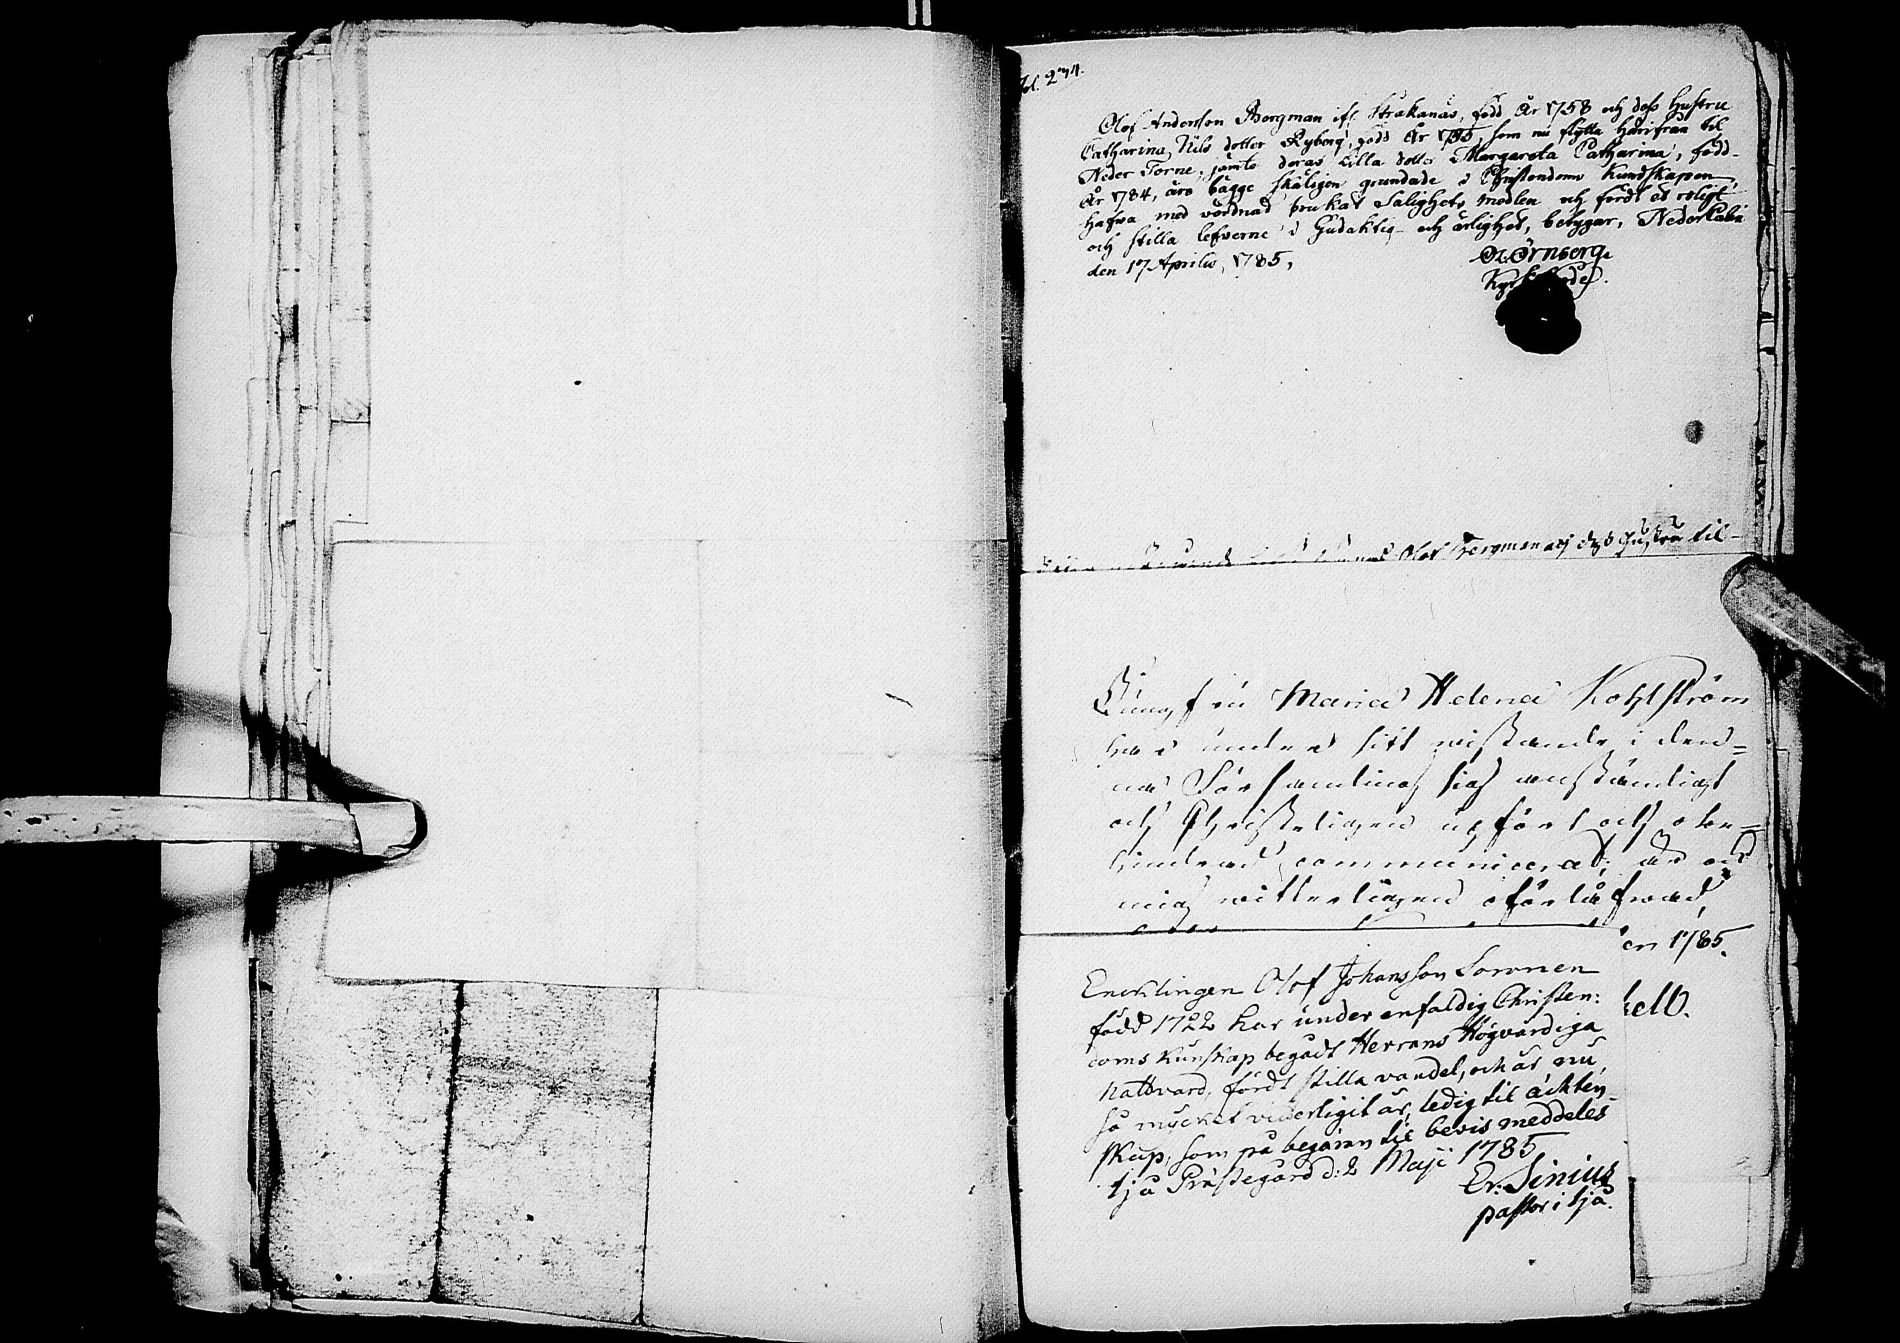 Fol. 274.
Olof Andersson Bergman ifr. Strakanäs, född År 1758 och dess hustru
Catharina Nils dotter Ryberg, född År 1755, som nu flytta härifrån til
Neder Torne, jämte deras lilla dotter Margareta Catharina, född
År 1784, äro bägge skäligen grundade i Christendoms Kundskapen,
hafwa med vördnad brukat Salighets medlen och fördt et roligt
och stilla lefverne i Gudaktig- och ärlighet, betygar, NederCalix
den 17 Aprilis, 1785,
Ol. Örnberg
Olof Bergman och dess hustru til-
Jungfru Maria Helena Kohlström
har under sitt wistande i den=
na Församling sig anständigt
och Christeligen upfört och obe=
hindrad communicerat; är ock
mig witterligen oförlåfwad,
en 1785.
hello.
Encklingen Olof Johansson Sorvnen
född 1722 har under enfaldig Christen:
doms kunskap begådt Herrans Högvärdiga
Nattvard, fördt stilla vandel, och är nu,
så mycket viderligit är, ledig til äckten-
skap, som på begäran til bevis meddeles
Ijå Prästegård d: 2 Maji 1785
Er. Sinius
pastor i Ijå.